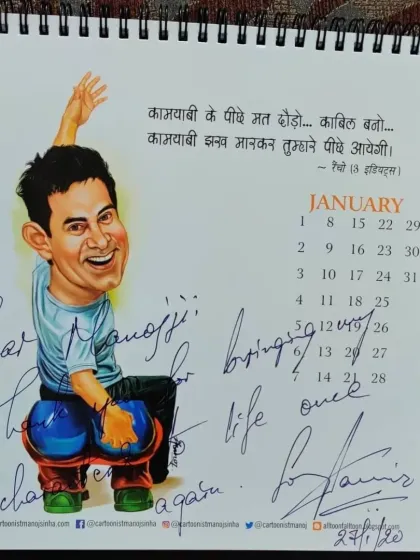 कामयाबी के पीछे मत दौड़ो... काबिल बनो...
कामयाबी झख मारकर तुम्हारे पीछे आयेगी।
~ रैंचो (3 इडियट्स)
JANUARY
1 8 15 22 29
2 9 16 23 30
3 10 17 24 31
4 11 18 25
5 12 19 26
6 13 20 27
7 14 21 28
ear Manojji
hank you for bringing my
character to life once
again.
Aamir
27/i/20
rtoonistmanojsinha.com @cartoonistmanojsinha /cartoonistmanojsinha alltoonfalltoon.blogspot